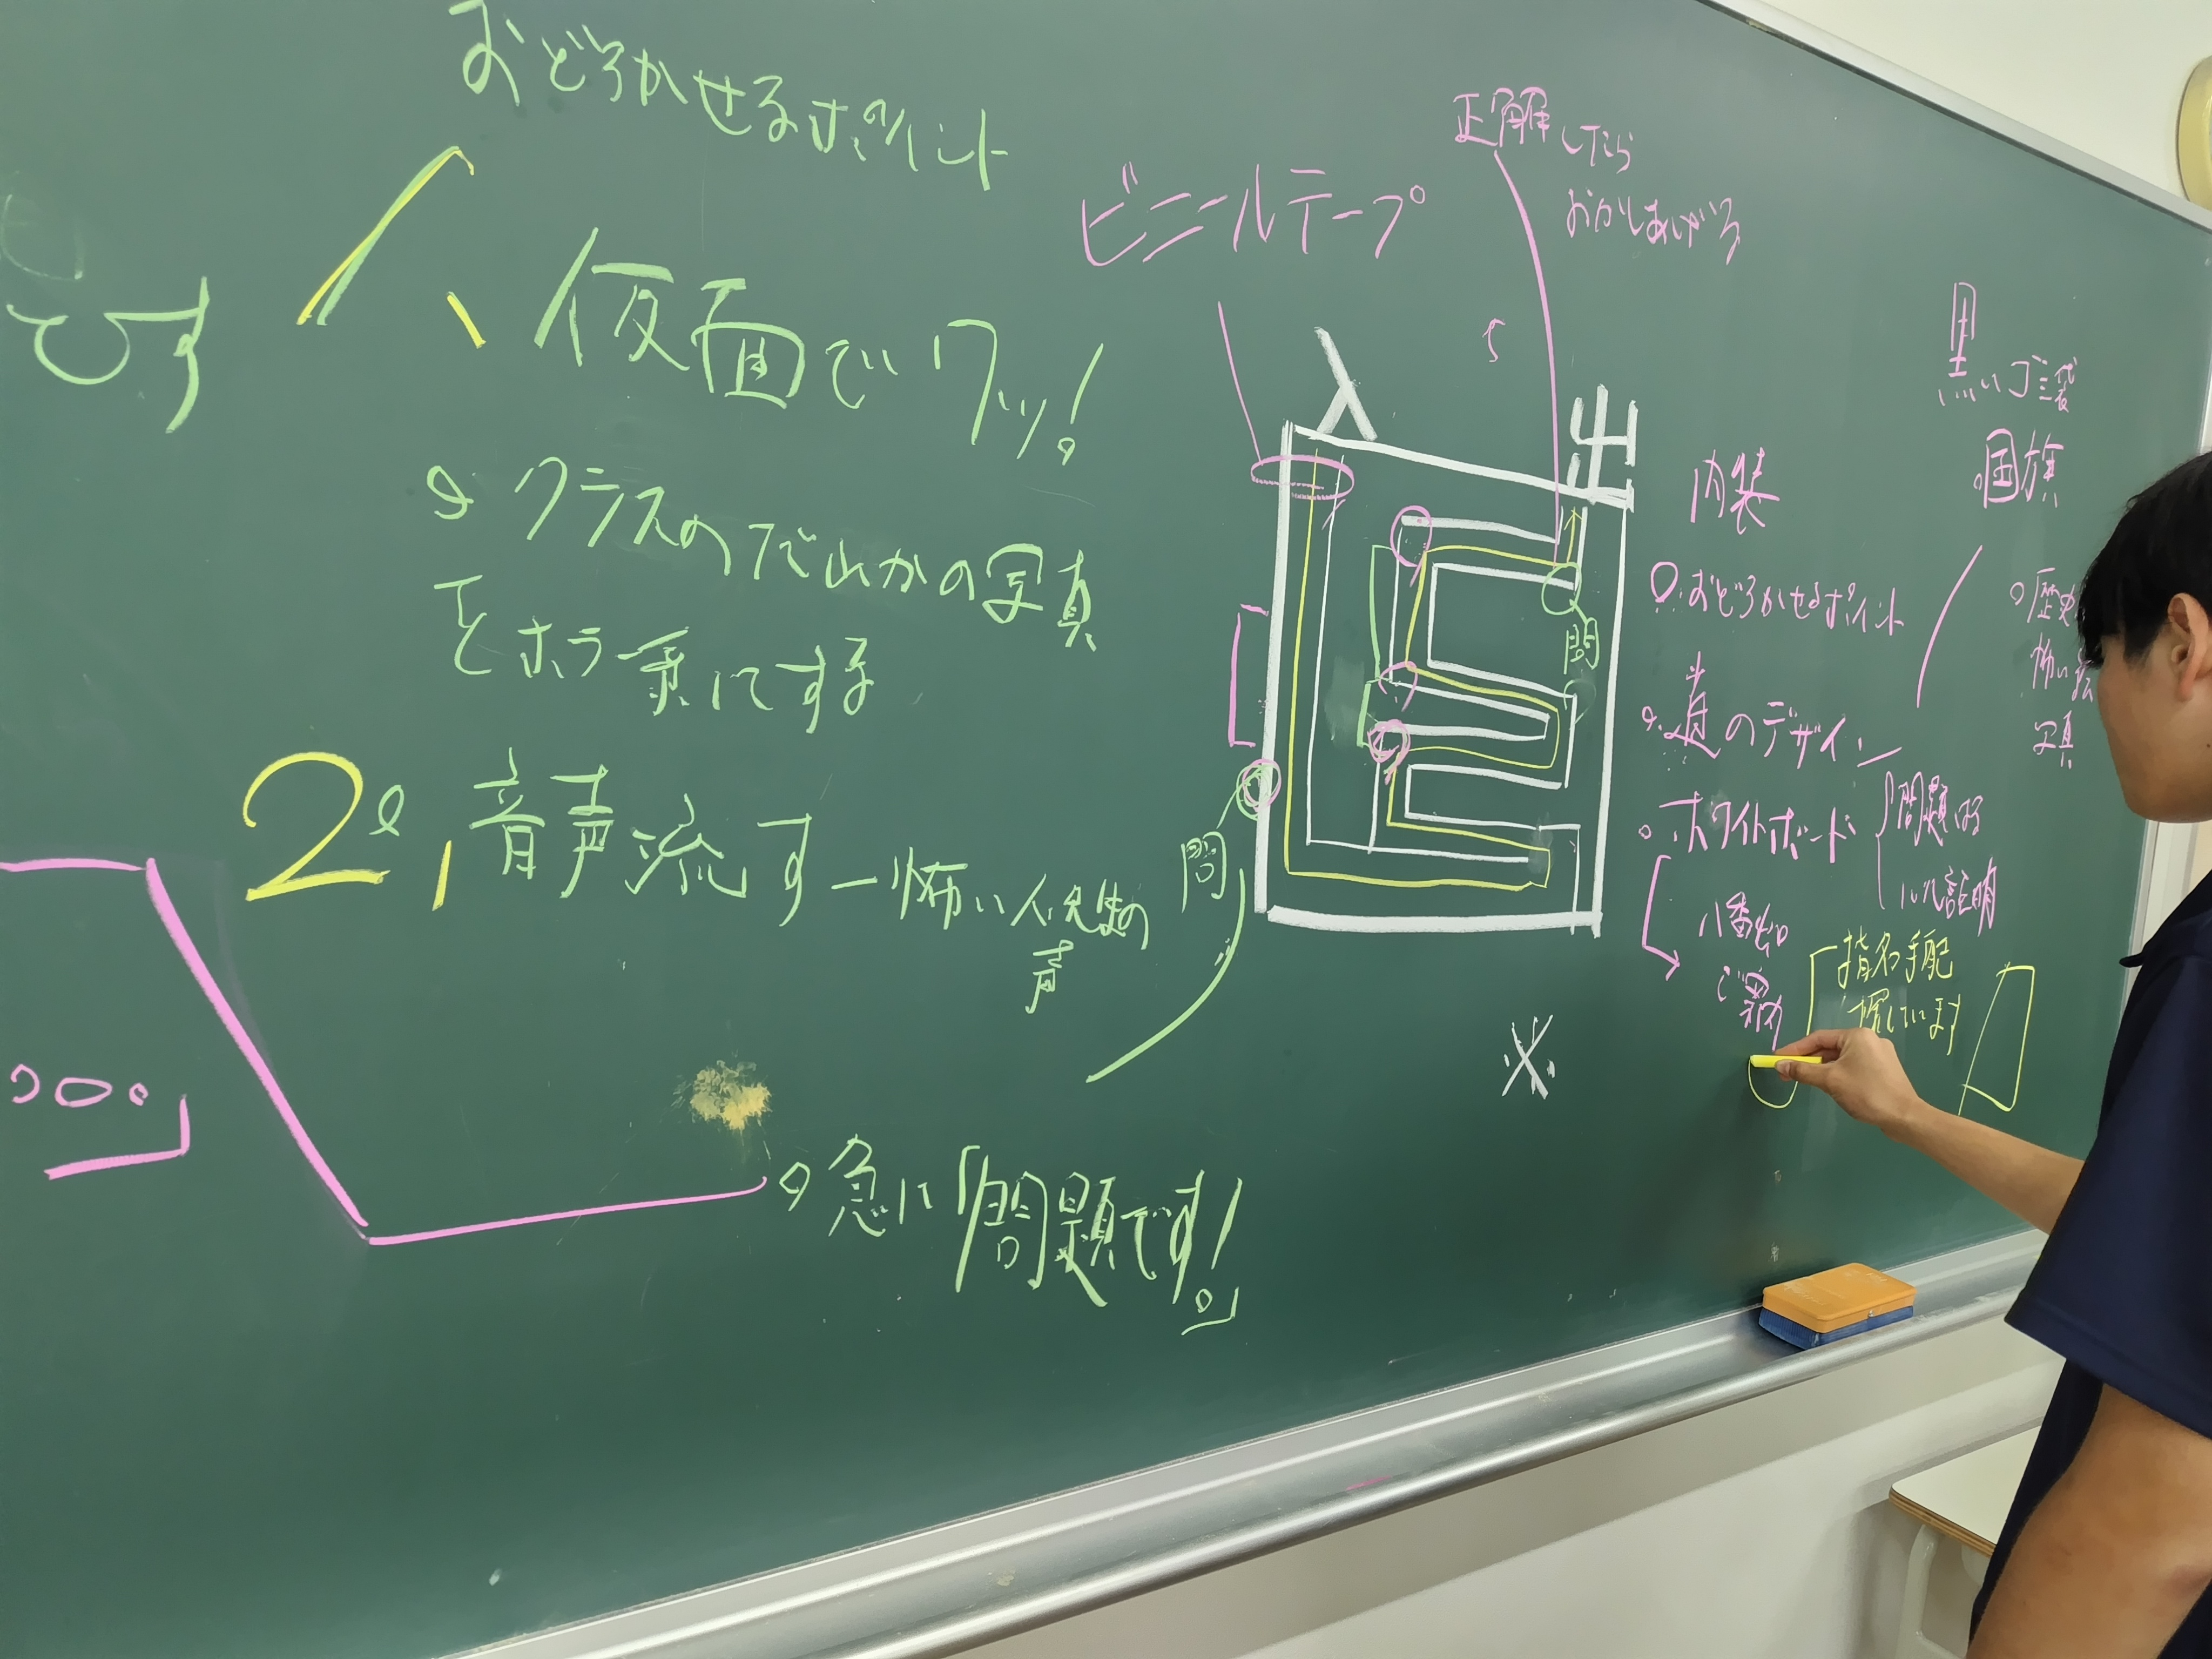 おどろかせるポイント
です
1、仮面でワッ!
クラスのだれかの写真
をホラー系にする
2、音声流す ー怖い人、先生の
声
急に「問題です!」
ビニールテープ
正解したら
おかしあげる
入
出
問
問
※
内装
おどろかせるポイント
道のデザイン
ホワイトボード
問題は
説明
指名手配
黒いゴミ袋
国旗
歴史
怖い
写真